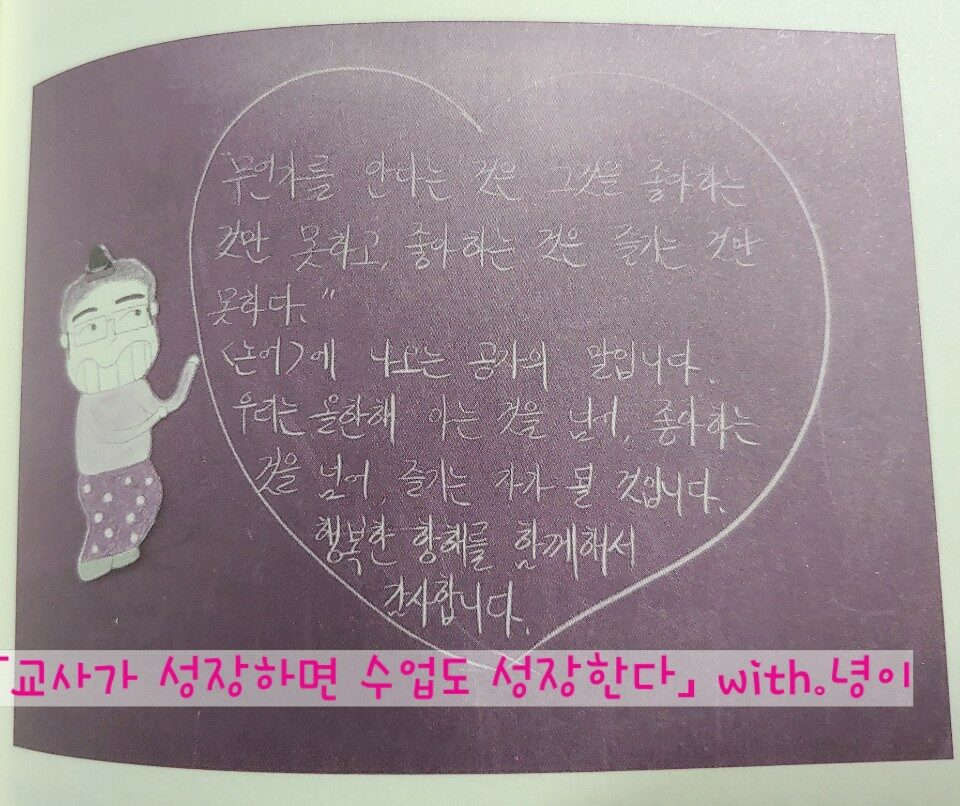 "무언가를 안다는 것은 그것을 좋아하는
것만 못하고, 좋아하는 것은 즐기는 것만
못하다."
<논어>에 나오는 공자의 말입니다.
우리는 올한해 아는 것을 넘어, 좋아하는
것을 넘어, 즐기는 자가 될 것입니다.
행복한 항해를 함께해서
감사합니다.
「교사가 성장하면 수업도 성장한다」 with.녕이